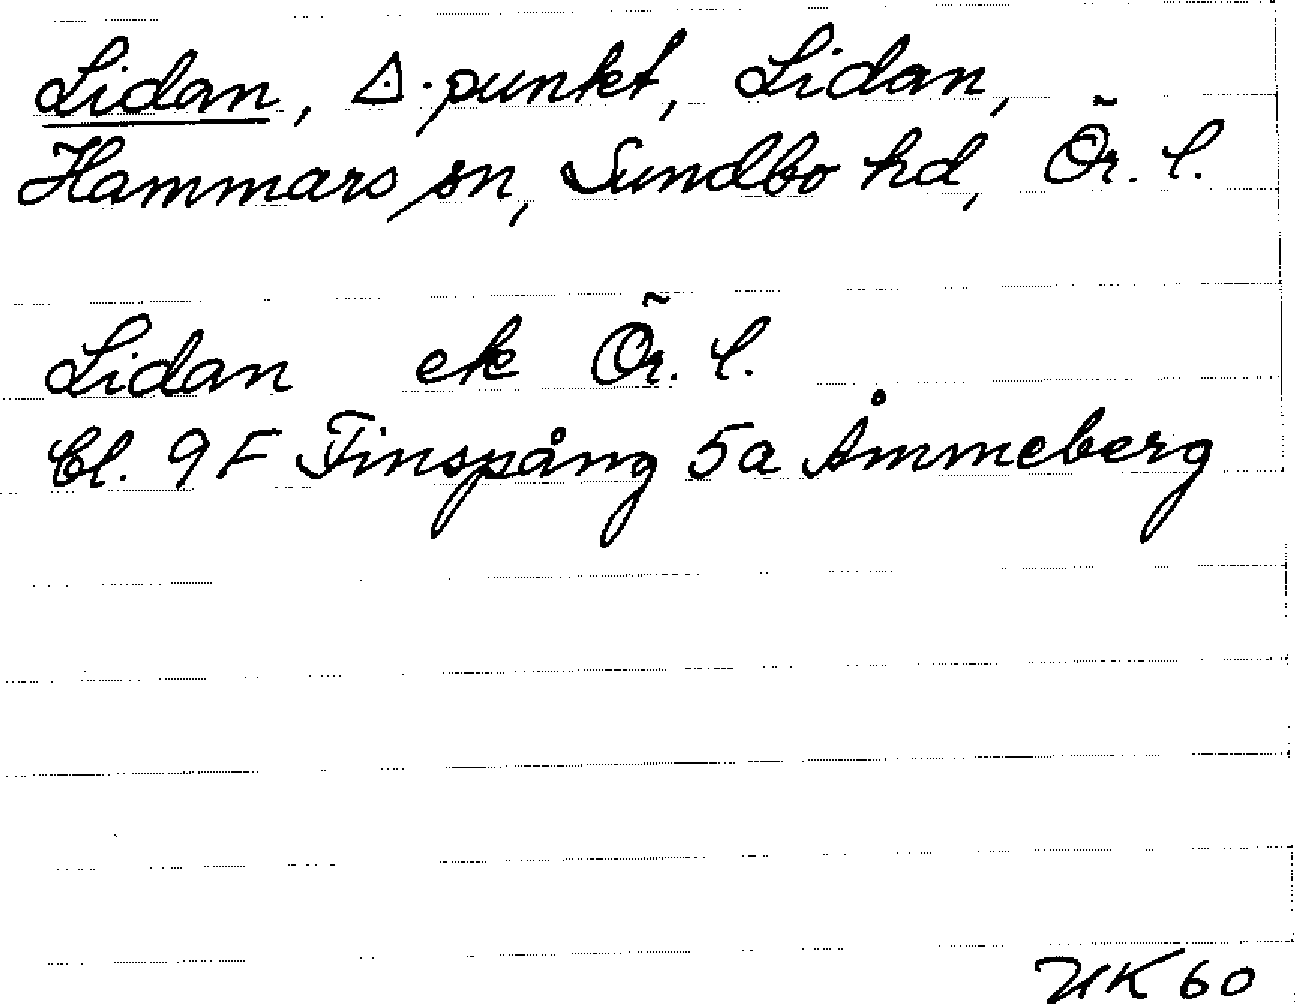 Lidan, △.punkt, Lidan,
Hammars sn, Sundbo hd, Ör. l.
Lidan ek Ör. l.
Bl. 9F Finspång 5a Åmmeberg
UK 60